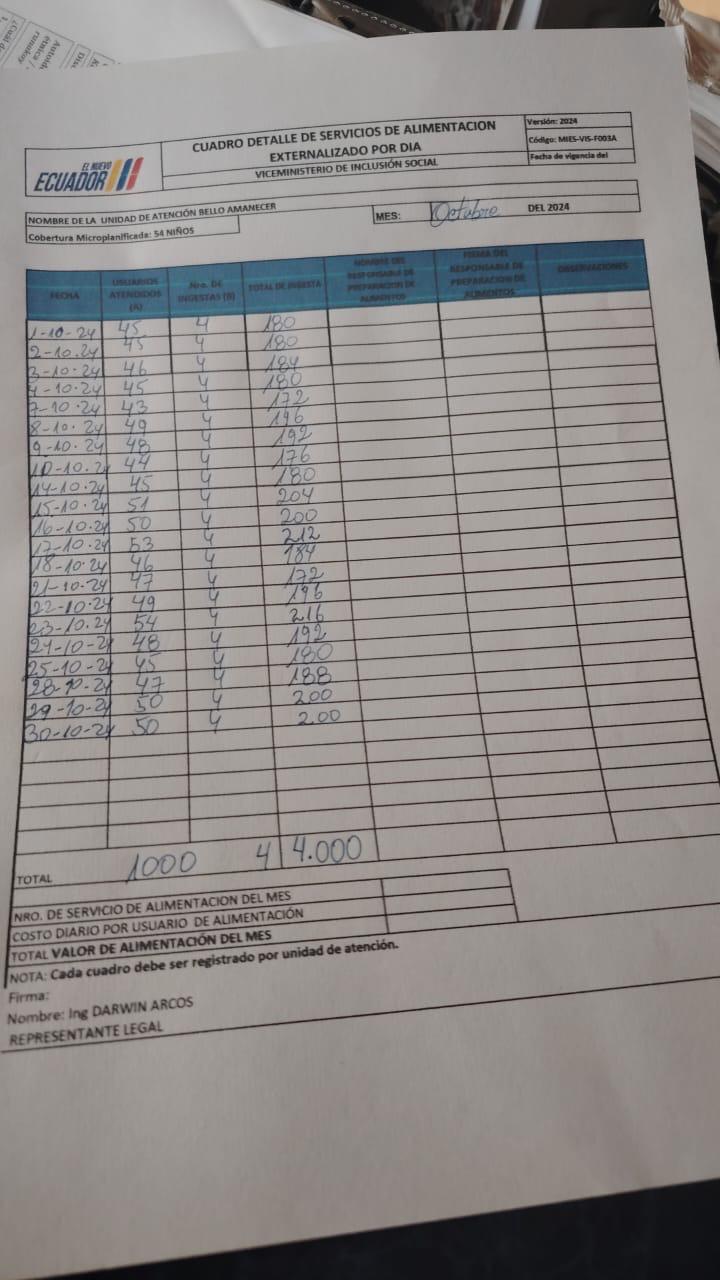 EL NUEVO
ECUADOR
CUADRO DETALLE DE SERVICIOS DE ALIMENTACION
EXTERNALIZADO POR DIA
VICEMINISTERIO DE INCLUSIÓN SOCIAL
Versión: 2024
Código: MIES-VIS-F003A
Fecha de vigencia del
NOMBRE DE LA UNIDAD DE ATENCIÓN BELLO AMANECER
MES: Octubre DEL 2024
Cobertura Microplanificada: 54 NIÑOS
FECHA USUARIOS ATENDIDOS (A) Nro. DE INGESTAS (B) TOTAL DE INGESTA NOMBRE DEL RESPONSABLE DE PREPARACION DE ALIMENTOS FIRMA DEL RESPONSABLE DE PREPARACION DE ALIMENTOS OBSERVACIONES
1-10-24 45 4 180
2-10-24 45 4 180
3-10-24 46 4 184
4-10-24 45 4 180
7-10-24 43 4 172
8-10-24 49 4 196
9-10-24 48 4 192
10-10-24 44 4 176
14-10-24 45 4 180
15-10-24 51 4 204
16-10-24 50 4 200
17-10-24 53 4 212
18-10-24 46 4 184
21-10-24 47 4 172
22-10-24 49 4 196
23-10-24 54 4 216
24-10-24 48 4 192
25-10-24 45 4 180
28-10-24 47 4 188
29-10-24 50 4 200
30-10-24 50 4 200
TOTAL 1000 4 4.000
NRO. DE SERVICIO DE ALIMENTACION DEL MES
COSTO DIARIO POR USUARIO DE ALIMENTACIÓN
TOTAL VALOR DE ALIMENTACIÓN DEL MES
NOTA: Cada cuadro debe ser registrado por unidad de atención.
Firma:
Nombre: Ing DARWIN ARCOS
REPRESENTANTE LEGAL